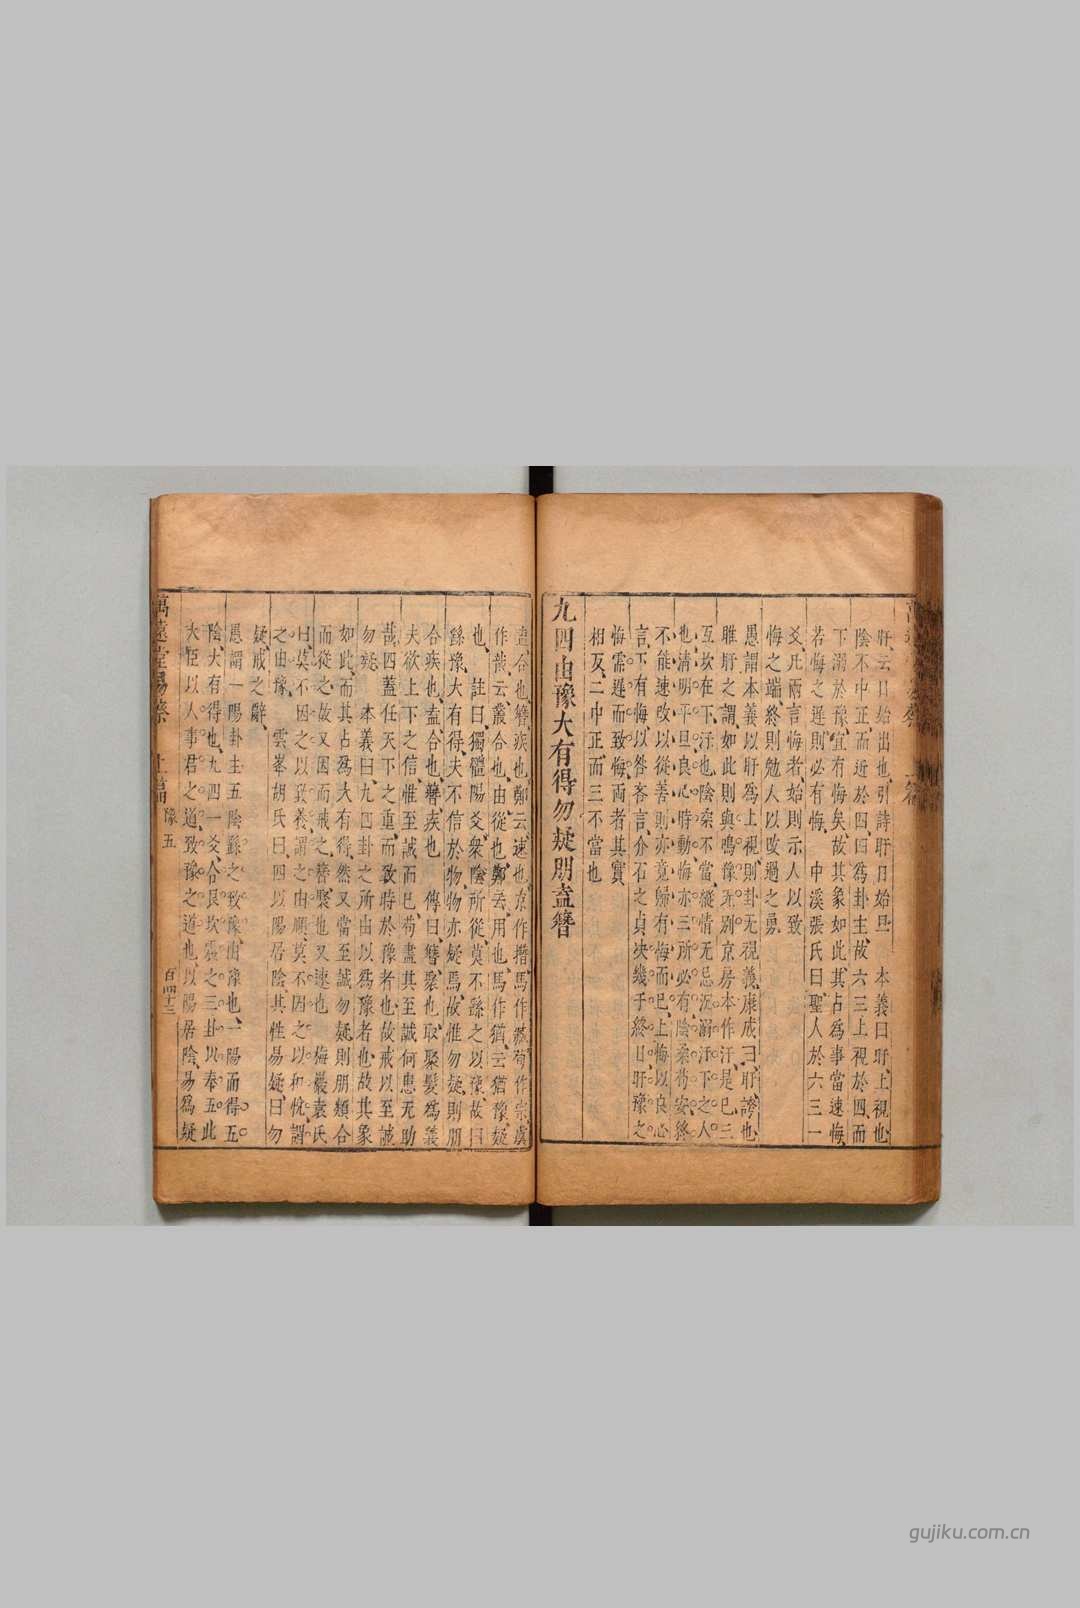 盱云日始出也引詩盱日始旦　本義曰盱上視也
陰不中正而近於四四為卦主故六三上視於四而
下溺於豫宜有悔矣故其象如此其占為事當速悔
若悔之遲則必有悔　中溪張氏曰聖人於六三一
爻凡兩言悔者始則示人以致
悔之端終則勉人以改過之勇
愚謂本義以盱為上視則卦无視義康成曰盱誇也
睢盱之謂如此則與鳴豫无別京房本作汙是已三
互坎在下汙也陰柔不當縱情无忌沉溺汙下之人
也清明平旦良心時動悔亦三所必有陰柔苟安終
不能速改以從善則亦竟歸有悔而已上悔以良心
言下有悔以咎吝言介石之貞决幾于終日盱豫之
悔需遲而致悔兩者其實
相反二中正而三不當也
九四由豫大有得勿疑朋盍簪
盍合也簪疾也鄭云速也京作撍馬作臧荀作宗虞
作哉云叢合也由從也鄭云用也馬作猶云猶豫疑
也　註曰獨體陽爻衆陰所從莫不繇之以豫故曰
繇豫大有得夫不信於物物亦疑焉故惟勿疑則朋
合疾也盍合也簪疾也　傳曰簪聚也取聚髮為義
夫欲上下之信惟至誠而已苟盡其至誠何患无助
哉四蓋任天下之重而致時於豫者也故戒以至誠
勿疑　本義曰九四卦之所由以為豫者也故其象
如此而其占為大有得然又當至誠勿疑則朋類合
而從之故又因而戒之簪聚也又速也　梅巖袁氏
曰莫不因之以致義謂之由順莫不因之以和悅謂
之由豫　雲峯胡氏曰四以陽居陰其性易疑曰勿
疑戒之辭
愚謂一陽卦主五陰繇之致豫由豫也一陽而得五
陰大有得也九四一爻合艮坎震之三卦以奉五此
大臣以人事君之道致豫之道也以陽居陰易為疑
萬遠堂易蔡　上篇　豫五　百四十三
gujiku.com.cn